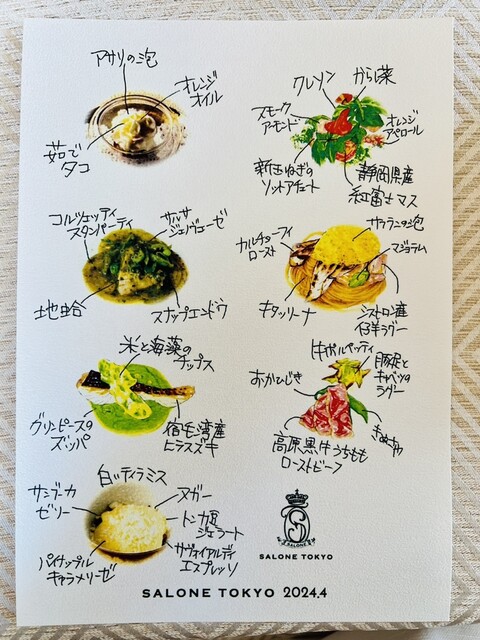 アサリの泡
オレンジ
オイル
茹で
タコ
クレソン
からし菜
スモーク
アーモンド
オレンジ
アペロール
新玉ねぎの
ソットアチェート
静岡県産
紅富士マス
コルツェッティ
スタンパーティ
サルサ
ジェノヴェーゼ
地蛤
スナップエンドウ
サフランの泡
カルチョーフィ
ロースト
マジョラム
キタッリーナ
シストロン産
仔羊ラグー
米と海藻の
チップス
グリーンピースの
ズッパ
宿毛湾産
ヒラスズキ
牛ガルベッティ
豚足と
キャベツの
ラグー
おかひじき
きぬさや
高原黒牛うちもも
ローストビーフ
白いティラミス
サンブーカ
ゼリー
ヌガー
トンカ豆
ジェラート
パイナップル
キャラメリーゼ
サヴォイアルディ
エスプレッソ
SALONE
SALONE TOKYO
SALONE TOKYO 2024.4